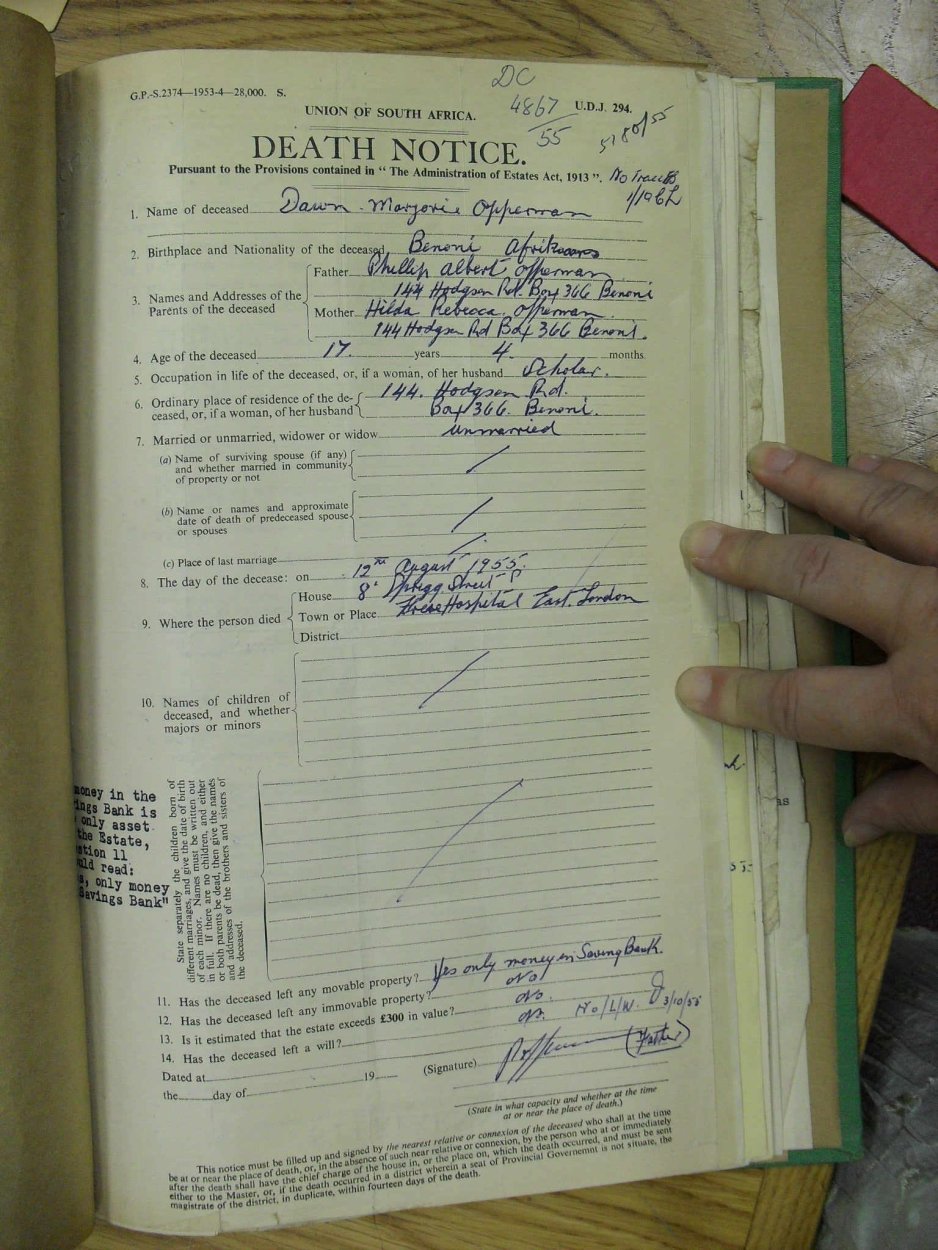 G.P.-S.2374—1953-4—28,000. S.
DC
4867/55
U.D.J. 294.
UNION OF SOUTH AFRICA.
5180/55
DEATH NOTICE.
Pursuant to the Provisions contained in “ The Administration of Estates Act, 1913 ”.
No Traces
1. Name of deceased Dawn Marjorie Opperman
2. Birthplace and Nationality of the deceased Benoni Afrikaans
3. Names and Addresses of the Parents of the deceased
Father Phillip Albert Opperman
144 Hodgson Rd. Box 366 Benoni
Mother Hilda Rebecca Opperman
144 Hodgson Rd Box 366 Benoni.
4. Age of the deceased 17. years 4. months
5. Occupation in life of the deceased, or, if a woman, of her husband Scholar.
6. Ordinary place of residence of the de-
ceased, or, if a woman, of her husband
144. Hodgson Rd.
Box 366. Benoni.
7. Married or unmarried, widower or widow Unmarried
(a) Name of surviving spouse (if any)
and whether married in community
of property or not
(b) Name or names and approximate
date of death of predeceased spouse
or spouses
(c) Place of last marriage
8. The day of the decease: on 12th August 1955.
9. Where the person died
House 8 Sprigg Street
Town or Place Frere Hospital East London
District
10. Names of children of
deceased, and whether
majors or minors
State separately the children born of
different marriages, and give the date of birth
of each minor. Names must be written out
in full. If there are no children, and either
or both parents be dead, then give the names
and addresses of the brothers and sisters of
the deceased.
money in the
ings Bank is
only asset
the Estate,
stion 11
uld read:
s, only money
Savings Bank"
11. Has the deceased left any movable property? Yes only money in Saving Bank.
12. Has the deceased left any immovable property? No!
13. Is it estimated that the estate exceeds £300 in value? No.
14. Has the deceased left a will? No. No/L/W. 3/10/55
Dated at 19
(Signature) (Father)
the day of
(State in what capacity and whether at the time
at or near the place of death.)
This notice must be filled up and signed by the nearest relative or connexion of the deceased who shall at the time
be at or near the place of death, or, in the absence of such near relative or connexion, by the person who at or immediately
after the death shall have the chief charge of the house in, or the place on, which the death occurred, and must be sent
either to the Master, or, if the death occurred in a district wherein a seat of Provincial Governemnt is not situate, the
magistrate of the district, in duplicate, within fourteen days of the death.